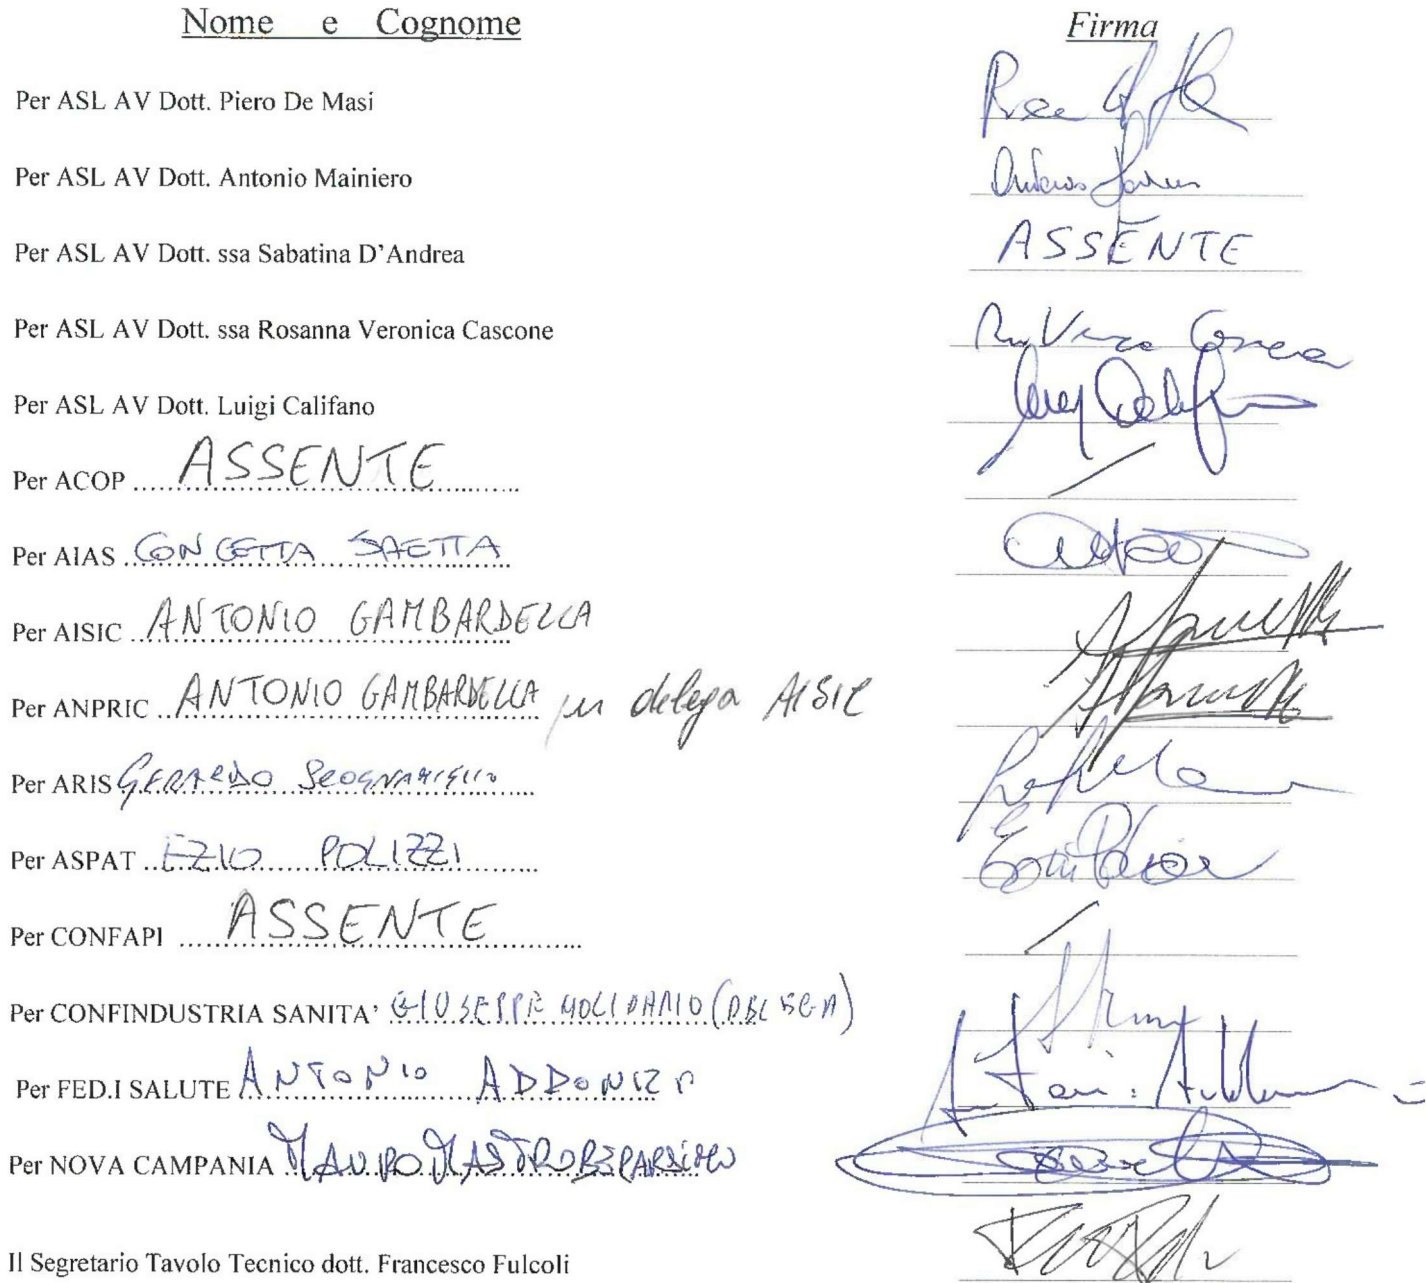 Nome e Cognome Firma
Per ASL AV Dott. Piero De Masi
Per ASL AV Dott. Antonio Mainiero
Per ASL AV Dott. ssa Sabatina D'Andrea ASSENTE
Per ASL AV Dott. ssa Rosanna Veronica Cascone
Per ASL AV Dott. Luigi Califano
Per ACOP ASSENTE
Per AIAS CONCETTA SAETTA
Per AISIC ANTONIO GAMBARDELLA
Per ANPRIC ANTONIO GAMBARDELLA per delega AISIC
Per ARIS GERARDO SCOGNAMIGLIO
Per ASPAT EZIO POLIZZI
Per CONFAPI ASSENTE
Per CONFINDUSTRIA SANITA' GIUSEPPE (DELEGA)
Per FED.I SALUTE ANTONIO
Per NOVA CAMPANIA MAURO
Il Segretario Tavolo Tecnico dott. Francesco Fulcoli